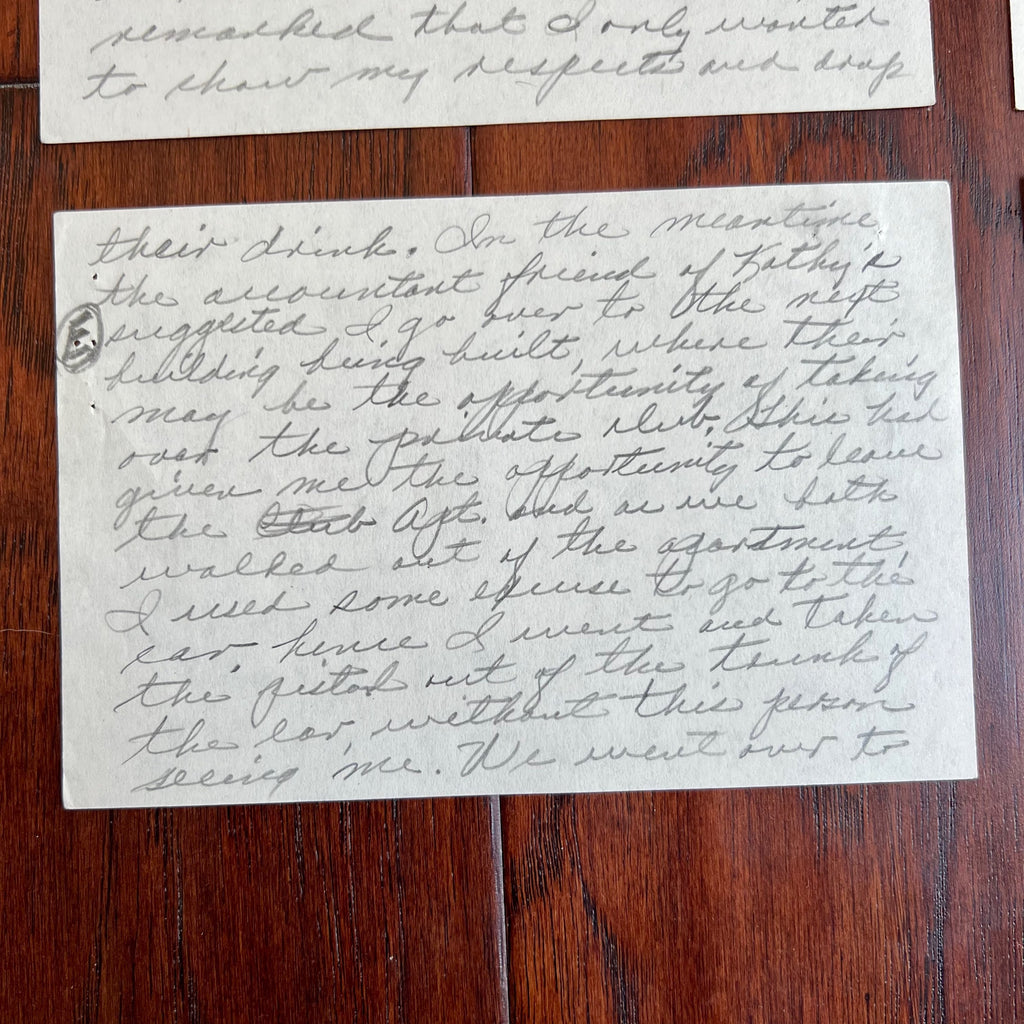 remarked that I only wanted
to show my respects and drop
their drink. In the meantime,
the accountant friend of Kathy's
suggested I go over to the next
building being built, where their
may be the opportunity of taking
over the private club. This had
given me the opportunity to leave
the Club Apt. and as we both
walked out of the apartment,
I used some excuse to go to the
car, hence I went and taken
the pistol out of the trunk of
the car, without this person
seeing me. We went over to